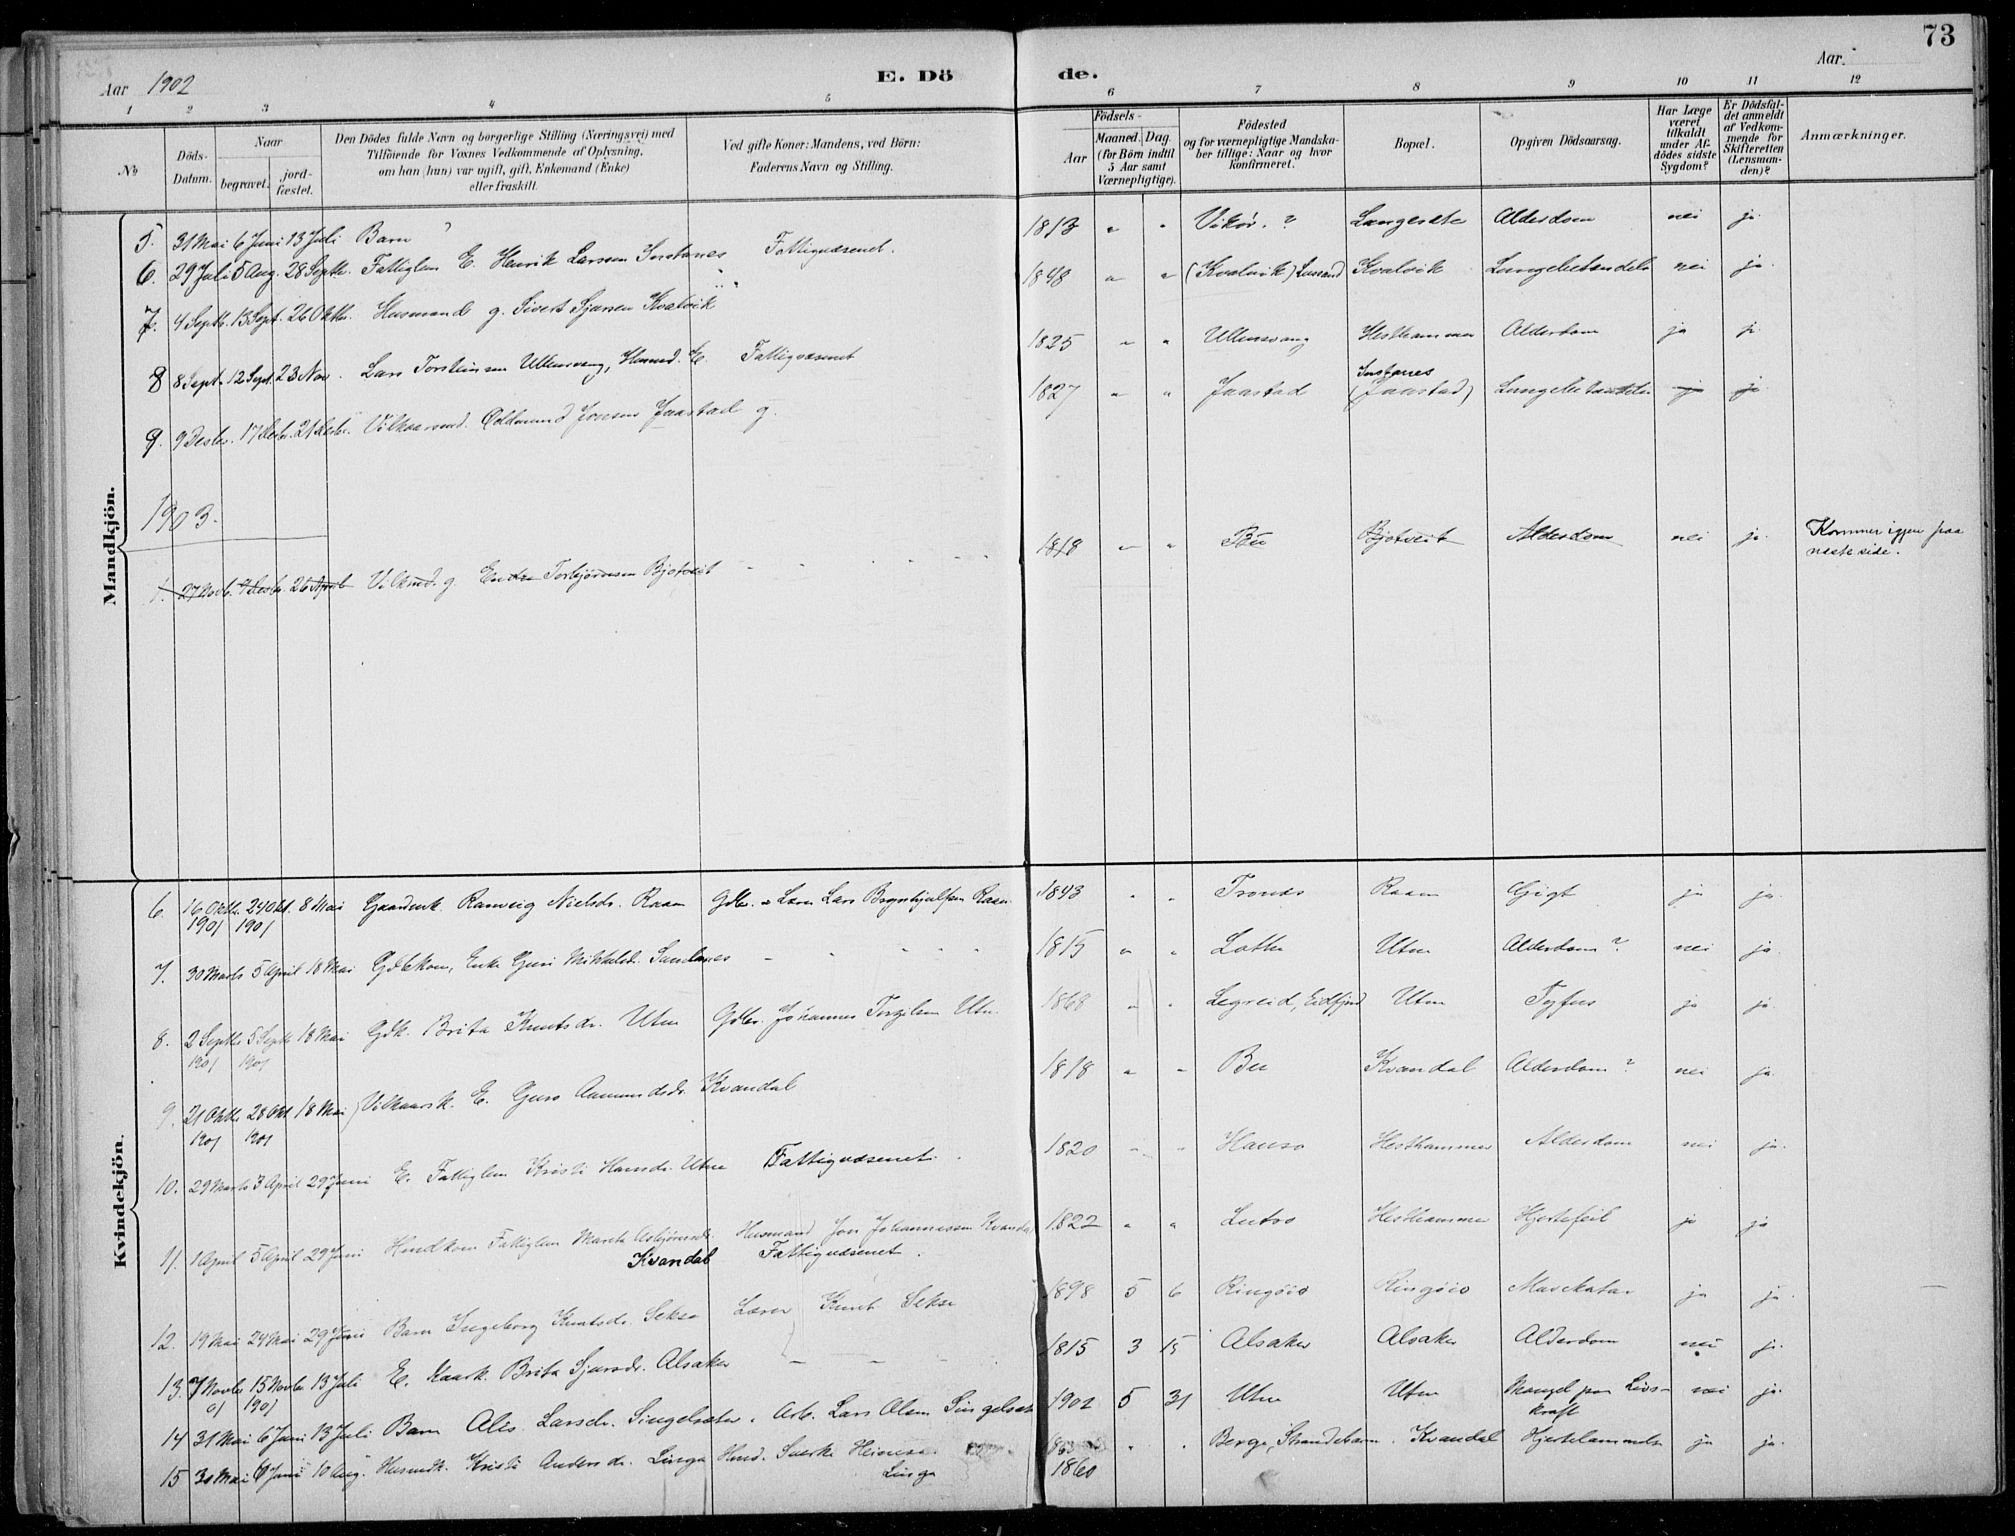 73
Aar 1902
E. Dö
de.
Aar
1 2 3 4 5 6 7 8 9 10 11 12
No
Döds-Datum.
Naar
begravet. jord-fæstet.
Den Dödes fulde Navn og borgerlige Stilling (Næringsvei) med
Tilföiende for Voxnes Vedkommende af Oplysning,
om han (hun) var ugift, gift, Enkemand (Enke)
eller fraskilt.
Ved gifte Koner: Mandens, ved Börn:
Faderens Navn og Stilling.
Födsels-
Aar
Maaned. Dag.
(for Börn indtil
5 Aar samt
Værnepligtige).
Födested
og for værnepligtige Mandska-
ber tillige: Naar og hvor
konfirmeret.
Bopæl.
Opgiven Dödsaarsag.
Har Læge
været
tilkaldt
under Af-
dödes sidste
Sygdom?
Er Dödsfal-
det anmeldt
af Vedkom-
mende for
Skifteretten
(Lensman-
den)?
Anmærkninger.
Mandkjön.
5. 31 Mai 6 Juni 13 Juli Barn ? 1813 " " Vikör. ? Langesæte Alderdom nei ja
6. 29 Juli 5 Aug. 28 Septb. Fattiglem E. Henrik Larssen Instanes Fattigvæsenet. 1848 " " (Kvalvik) Kvalvik Lungebetændelse nei ja.
7. 4 Septb. 13 Sept. 26 Oktbr. Husmand g. Sivert Sjursen Kvalvik " 1825 " " Ullensvang Hesthammer Alderdom ja ja
8 8 Sept. 12 Sept. 23 Nov. Lars Torsteinsen Ullensvang, Husmd. E. Fattigvæsenet 1827 " " Jaastad Instanes (Jaastad) Lungebetændelse ja ja
9. 9 Desbr. 17 Desbr. 21 Desbr. Vilkaarmd. Oddmund Jonsen Jaastad g.
1903.
1. 27 Novb. 4 Desbr. 26 April Vilkmd. g. Endre Torbjørnsen Bjotveit 1818 " " Bu Bjotveit Alderdom nei ja. Kommer igjen paa
næste side.
Kvindekjön.
6. 16 Oktbr. 24 Okt. 8 Mai Gaardmk. Ranveig Nielsdr. Raam Gdbr. & Lærer Lars Brynhjulfsen Raam 1843 " " Tronæs Raam Gigt ja ja.
1901 1901
7. 30 Marts 5 April 18 Mai Gdbkone, Enke Guri Mikkelsdr. Samlanes 1815 " " Lothe Utne Alderdom? nei ja.
8. 2 Septbr 5 Septb 18 Mai Gdk. Brita Knutsdr. Utne Gdbr. Johannes Torgilsen Utne 1868 " " Legreid, Eidfjord Utne Tyfus ja ja.
1901 1901
9. 21 Oktbr 28 Okt 18 Mai Vilkaarsk. E. Guro Aamundsdr. Kvandal 1818 " " Bu Kvandal Alderdom? nei ja.
1901 1901
10. 29 Marts 3 April 29 Juni E. Fattiglem Kristi Hansdr. Utne Fattigvæsenet. 1820 " " Hauso Hesthammer Alderdom nei ja.
11. 1 April 5 April 29 Juni Fattiglem Marita Asbjørnsdr. Husmand Jon Johannessen Kvandal 1822 " " Lutro Hesthammer Hjertefeil ja ja
Kvandal Fattigvæsenet.
12. 19 Mai 24 Mai 29 Juni Barn Ingeborg Knutsdr. Sekse Lærer Knut Sekse 1898 5 6 Ringøio Ringøio Mavekatar ja ja.
13. 7 Novbr 15 Novbr. 13 Juli E. Kaark. Brita Sjursdr. Alsaker 1815 3 15 Alsaker Alsaker Alderdom nei ja.
01 1901
14 31 Mai 6 Juni 13 Juli Barn Alis Larsdr. Singelsæter. Arb. Lars Olsen Singelsæter 1902 5 31 Utne Utne Mangel paa Livs-
kraft nei ja.
15 30 Mai 6 Juni 10 Aug. Husmdk. Kristi Andersdr. Linga Husmd. Sverke 1860 " " Berge, Strandebarm. Kvandal Hjertelammelse ja ja.
Linga